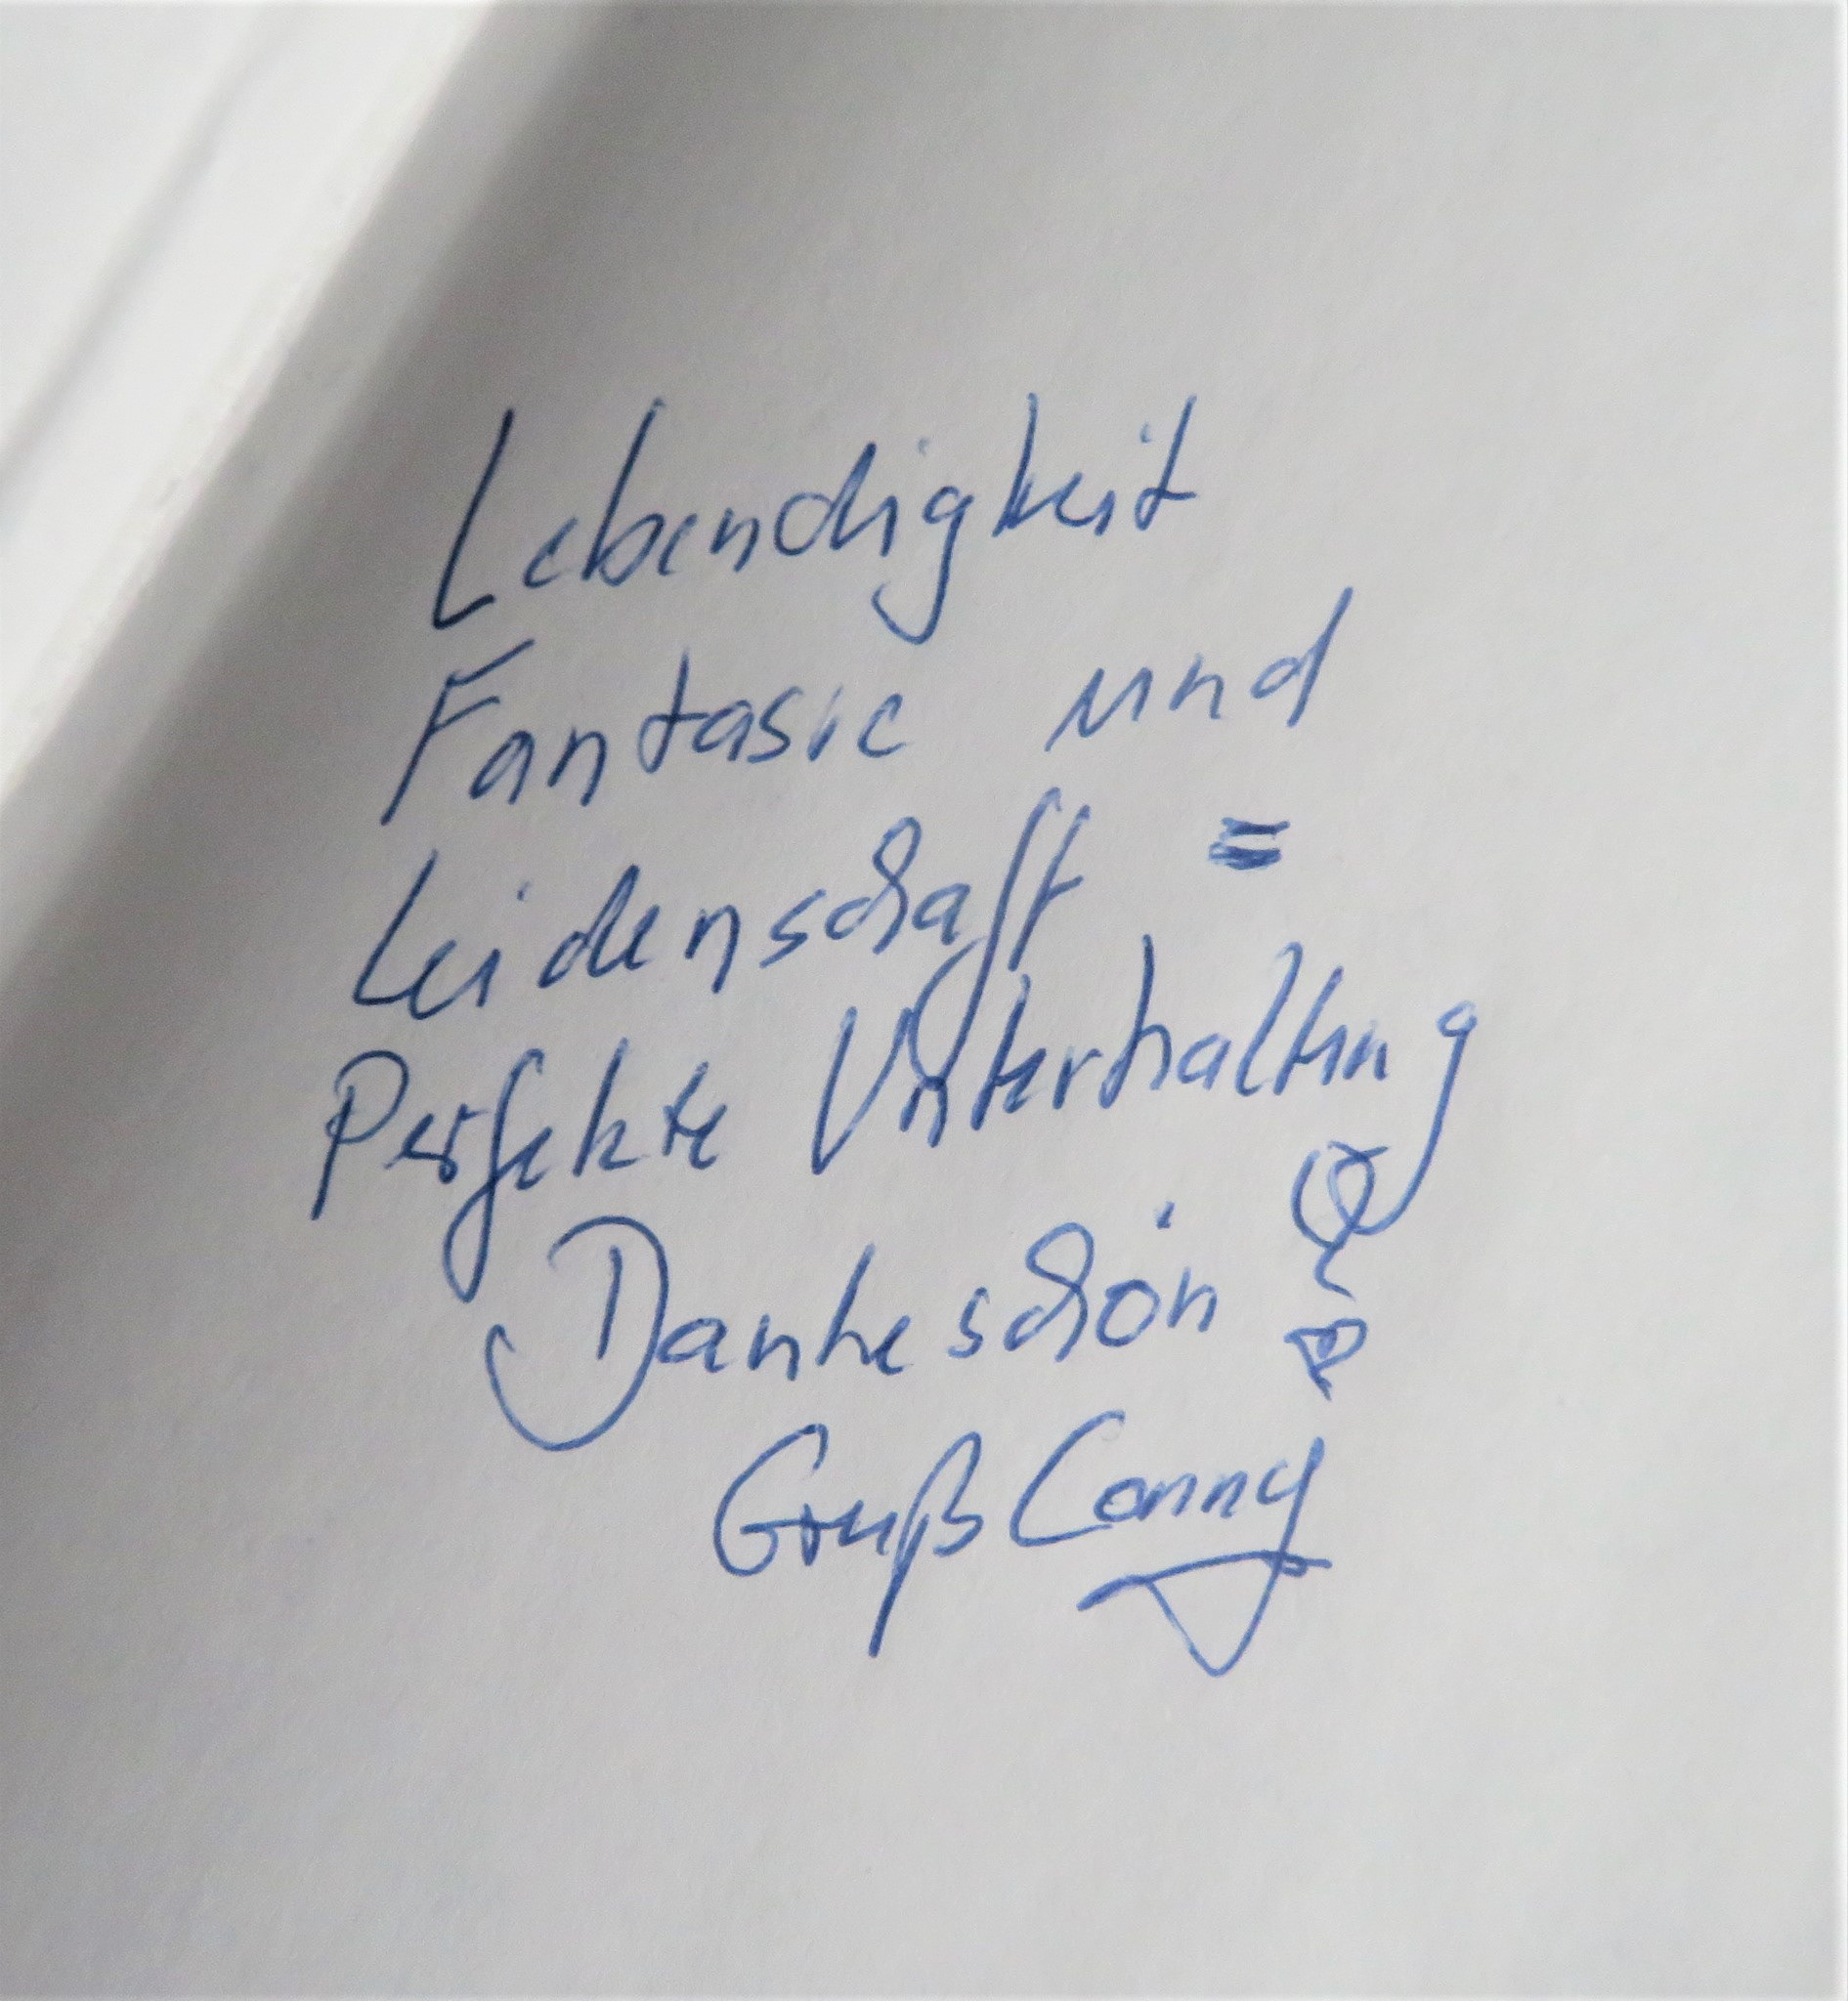 Lebendigkeit
Fantasie und
Leidenschaft =
Perfekte Unterhaltung
Dankeschön
Gruß Conny